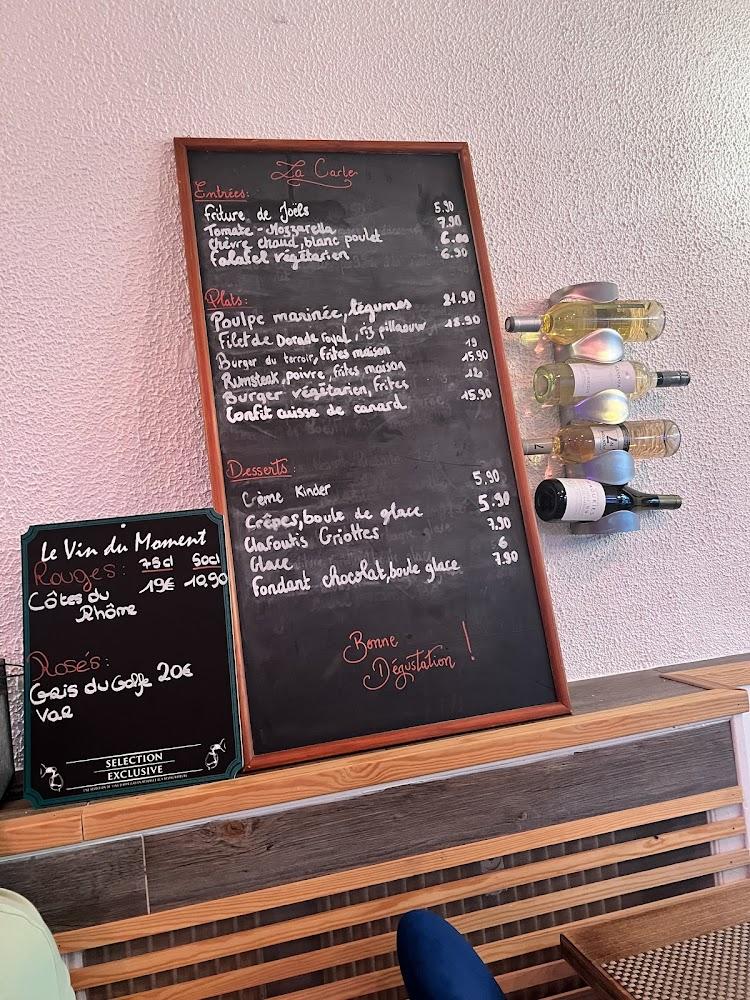 La Carte
Entrées:
Friture de Joëls 5.90
Tomate-Mozzarella 7.90
Chèvre chaud, blanc poulet 6.00
Falafel végétarien 6.90
Plats:
Poulpe marinée, légumes 21.90
Filet de Dorade royal, riz pillaouw 18.90
Burger du terroir, frites maison 19
Rumsteak, poivre, frites maison 15.90
Burger végétarien, frites
Confit cuisse de canard 15.90
Desserts:
Crème Kinder 5.90
Crêpes, boule de glace 5.90
Clafoutis Griottes 7.90
Glace 6
Fondant chocolat, boule glace 7.90
Bonne
Dégustation !
Le Vin du Moment
Rouges: 75cl 50cl
Côtes du 19€ 10,90
Rhôme
Rosés:
Gris du Golfe 20€
Var
SELECTION
EXCLUSIVE